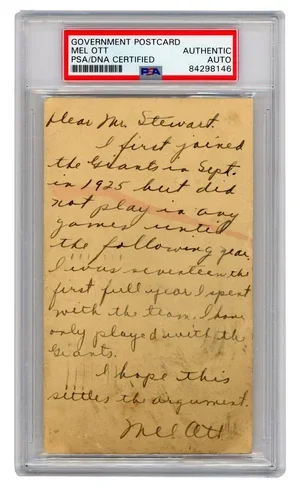 GOVERNMENT POSTCARD
MEL OTT AUTHENTIC
PSA/DNA CERTIFIED PSA AUTO
84298146
Dear Mr. Stewart.
I first joined
the Giants in Sept.
in 1925 but did
not play in any
games until
the following year.
I was seventeen the
first full year I spent
with the team. I have
only played with the
Giants.
I hope this
settles the argument.
Mel Ott